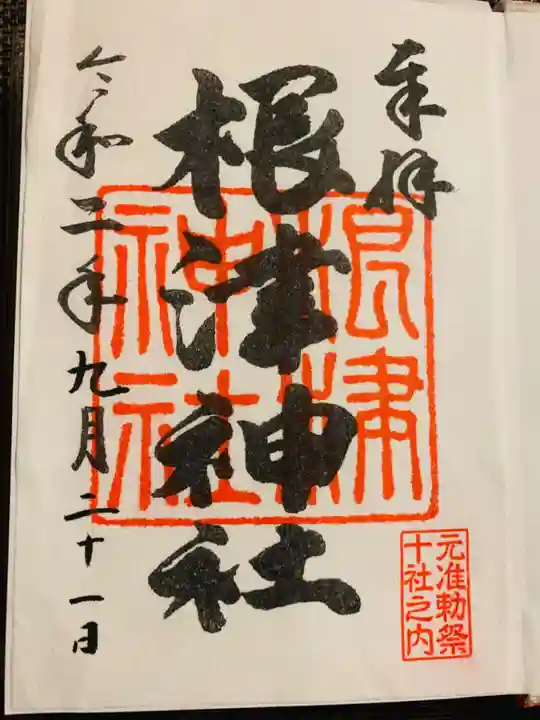 奉拝
根津神社
根津
神社
令和二年九月二十一日
元准勅祭
十社之内